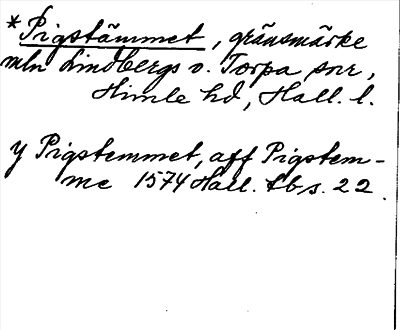 *Pigstämmet, gränsmärke
mln Lindbergs o. Torpa snr,
Himle hd, Hall. l.
y Pigstemmet, aff Pigstem-
me 1574 Hall. tb s. 22.